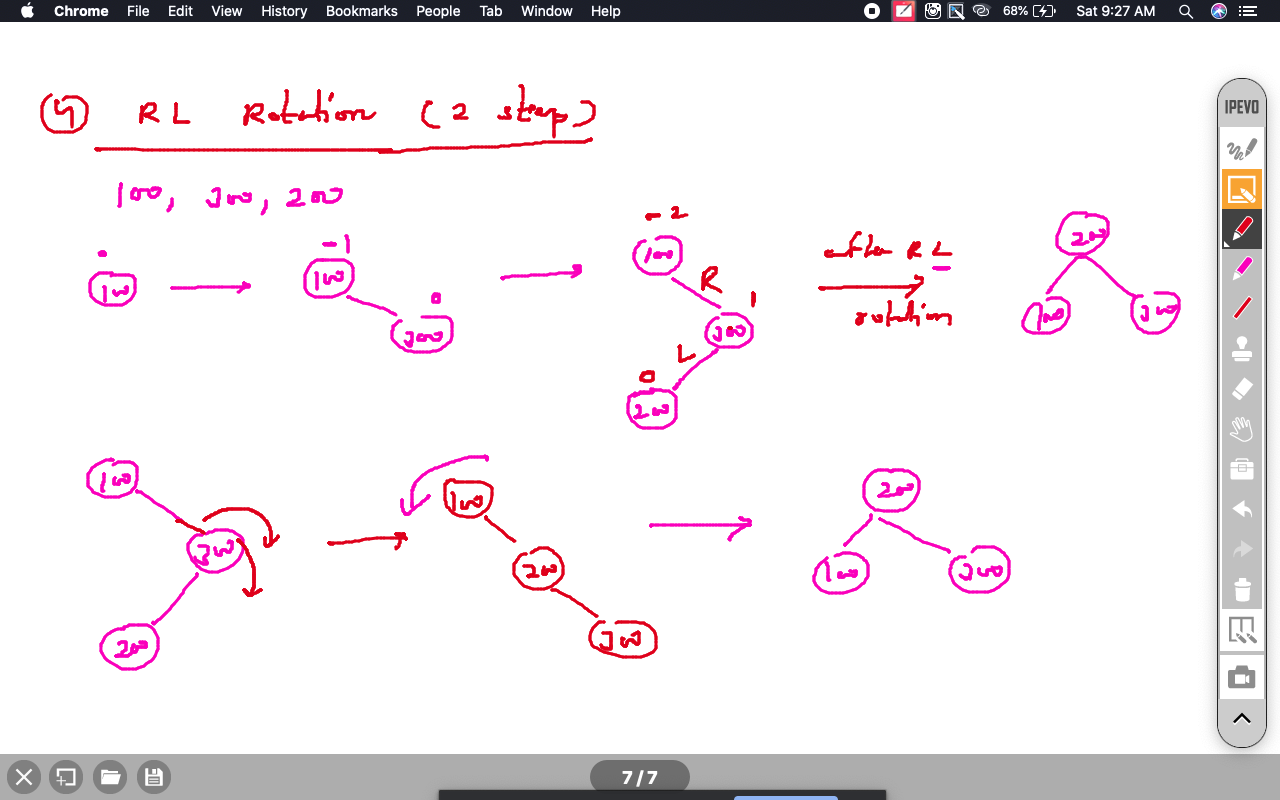 Chrome File Edit View History Bookmarks People Tab Window Help 68% Sat 9:27 AM
IPEVO
④ RL Rotation (2 step)
100, 300, 200
0 -1 -2
100 100 0 100 R 1 after RL 200
300 L 300 rotation 100 300
0
200
100 100 200
300 200 100 300
200 300
7/7